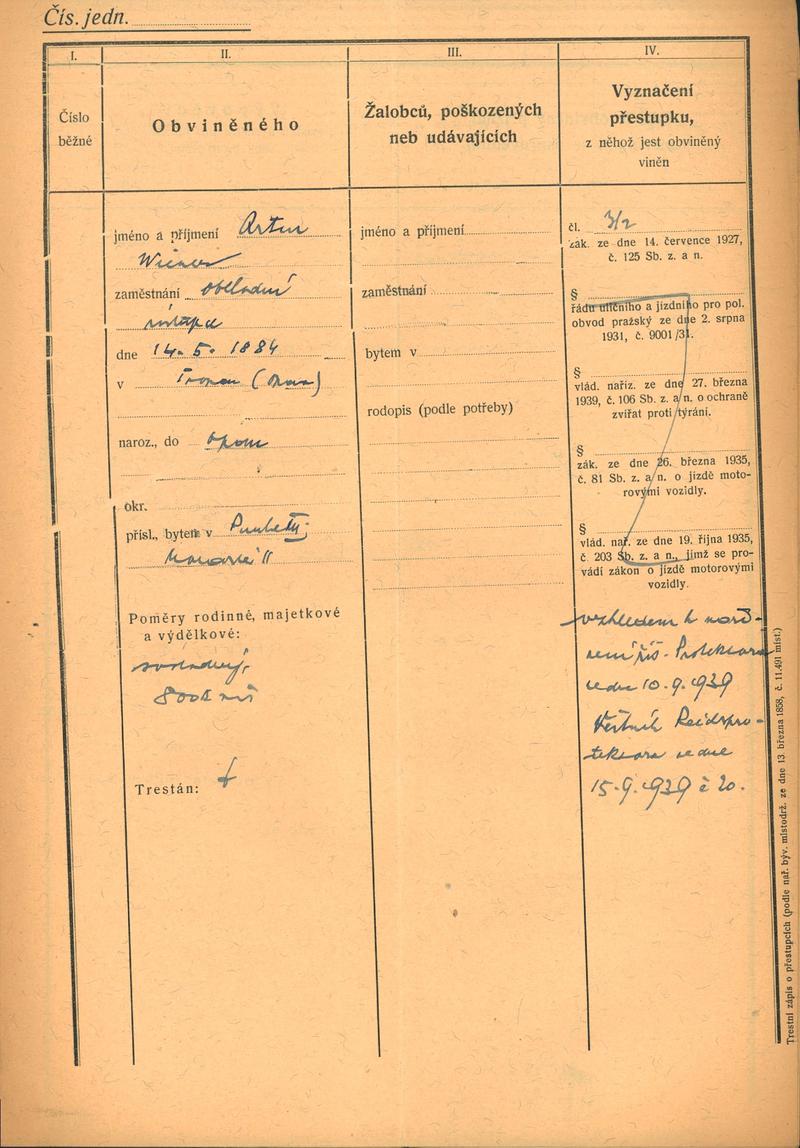 Čís. jedn.
I.
II.
III.
IV.
Číslo
běžné
Obviněného
Žalobců, poškozených
neb udávajících
Vyznačení
přestupku,
z něhož jest obviněný
viněn
jméno a příjmení Artur
Wiener
zaměstnání obchodní
zástupce
dne 14. 5. 1884
v
naroz., do
okr.
přísl., bytem v
Poměry rodinné, majetkové
a výdělkové:
svobodný,
Trestán:
jméno a příjmení
zaměstnání
bytem v
rodopis (podle potřeby)
čl. 3/2
zák. ze dne 14. července 1927,
č. 125 Sb. z. a n.
§
řádu uličního a jízdního pro pol.
obvod pražský ze dne 2. srpna
1931, č. 9001/31.
§
vlád. naříz. ze dne 27. března
1939, č. 106 Sb. z. a n. o ochraně
zvířat proti týrání.
§
zák. ze dne 26. března 1935,
č. 81 Sb. z. a n. o jízdě moto-
rovými vozidly.
§
vlád. nař. ze dne 19. října 1935,
č. 203 Sb. z. a n., jímž se pro-
vádí zákon o jízdě motorovými
vozidly.
vzhledem k naří-
zení říš. Protektora
ze dne 10. 9. 1939
Věstník Reichspro-
tektora ze dne
15. 9. 1939 č 20.
Trestní zápis o přestupcích (podle nař. býv. místodrž. ze dne 13. března 1858, č. 11.491 míst.)